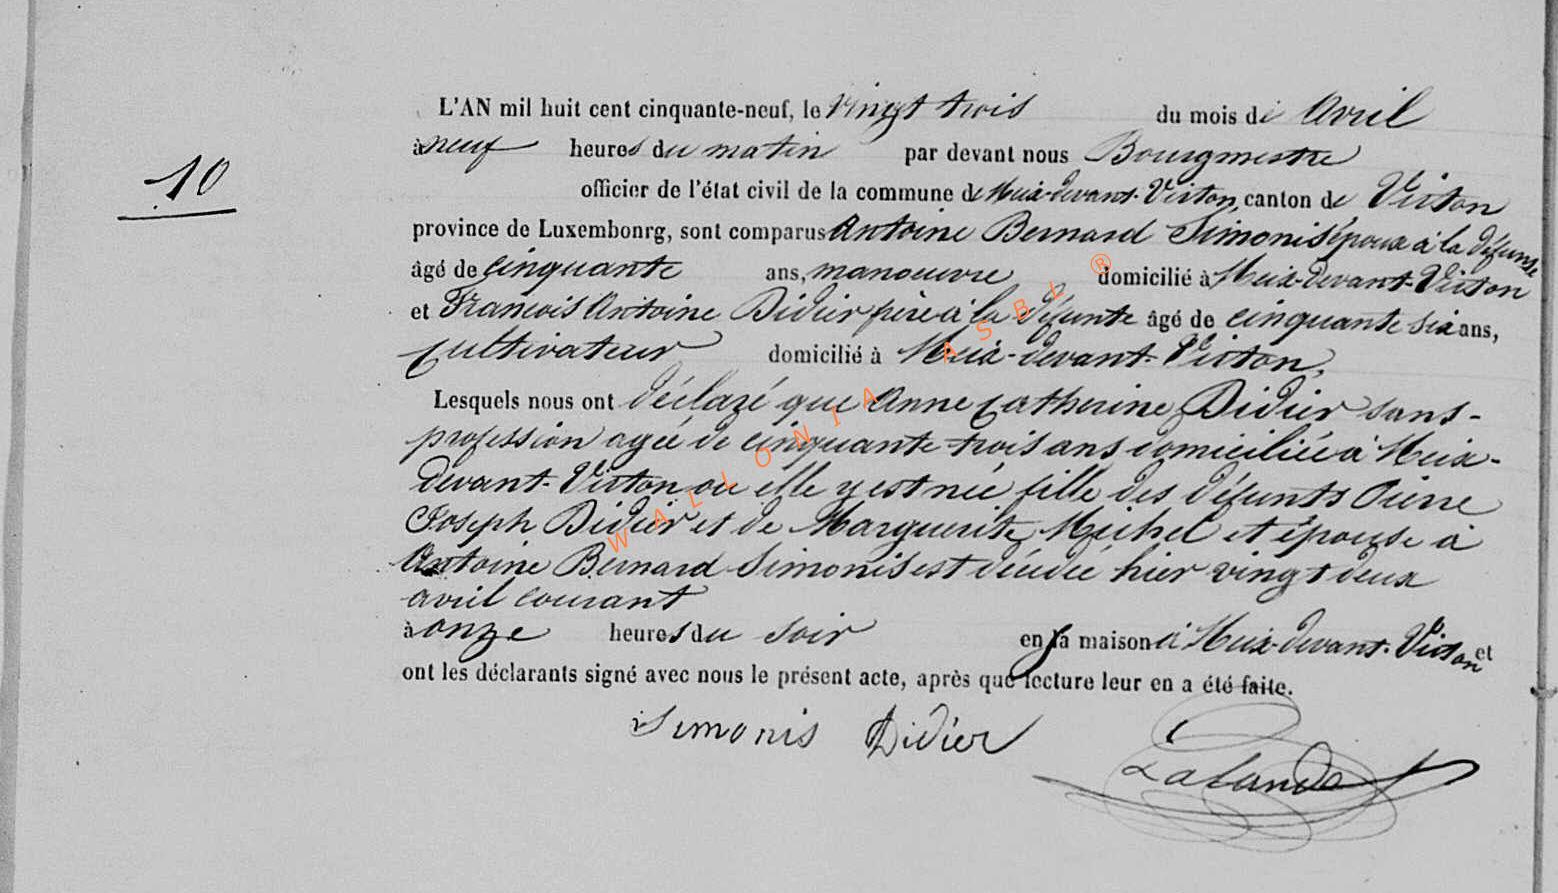 L'AN mil huit cent cinquante-neuf, le vingt trois du mois de avril
à neuf heures du matin par devant nous Bourgmestre
10
officier de l'état civil de la commune de Meix-devant-Virton, canton de Virton
province de Luxembourg, sont comparus Antoine Bernard Simonis époux à la défunte
âgé de cinquante ans, manoeuvre domicilié à Meix-devant-Virton
et François Antoine Didier frère à la défunte âgé de cinquante six ans,
cultivateur domicilié à Meix-devant-Virton,
Lesquels nous ont déclaré que Anne Catherine Didier sans-
profession agée de cinquante-trois ans domiciliée à Meix-
devant-Virton ou elle y est née fille des défunts Pierre
Joseph Didier et de Marguerite Michel et épouse à
Antoine Bernard Simonis est décédée hier vingt deux
avril courant
à onze heures du soir en sa maison à Meix-devant-Virton et
ont les déclarants signé avec nous le présent acte, après que lecture leur en a été faite.
Simonis Didier
Lalande
WALLONIA ASBL ®